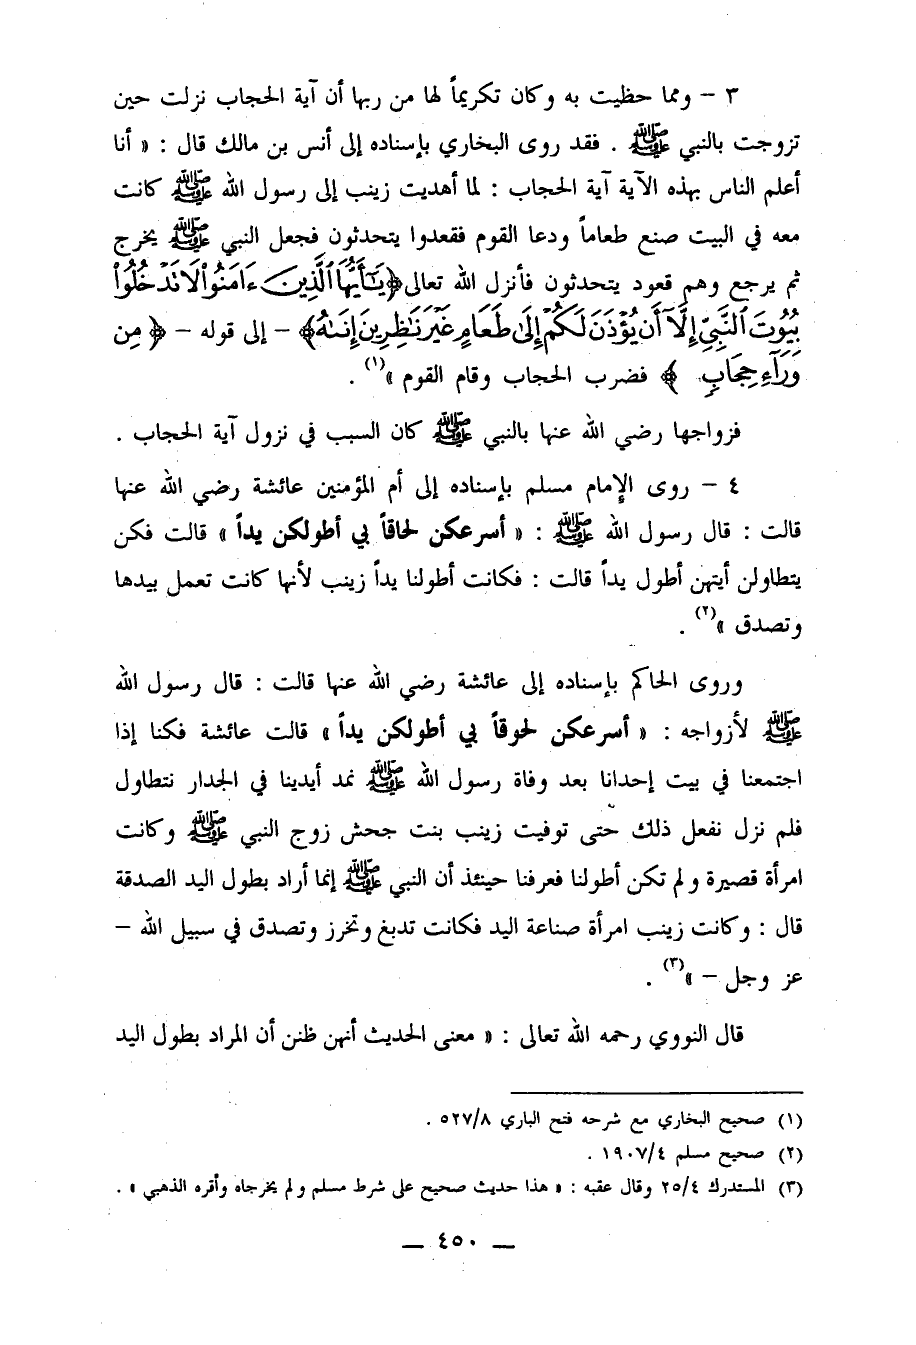 ٣ – ومما حظيت به وكان تكريماً لها من ربها أن آية الحجاب نزلت حين
تزوجت بالنبي ﷺ . فقد روى البخاري بإسناده إلى أنس بن مالك قال : « أنا
أعلم الناس بهذه الآية آية الحجاب : لما أهديت زينب إلى رسول الله ﷺ كانت
معه في البيت صنع طعاماً ودعا القوم فقعدوا يتحدثون فجعل النبي ﷺ يخرج
ثم يرجع وهم قعود يتحدثون فأنزل الله تعالى ﴿يَٰٓأَيُّهَا ٱلَّذِينَ ءَامَنُوا۟ لَا تَدْخُلُوا۟
بُيُوتَ ٱلنَّبِىِّ إِلَّآ أَن يُؤْذَنَ لَكُمْ إِلَىٰ طَعَامٍ غَيْرَ نَٰظِرِينَ إِنَىٰهُ﴾ – إلى قوله – ﴿ مِن
وَرَآءِ حِجَابٍ ﴾ فضرب الحجاب وقام القوم »(١) .
فزواجها رضي الله عنها بالنبي ﷺ كان السبب في نزول آية الحجاب .
٤ – روى الإمام مسلم بإسناده إلى أم المؤمنين عائشة رضي الله عنها
قالت : قال رسول الله ﷺ : « أسرعكن لحاقاً بي أطولكن يداً » قالت فكن
يتطاولن أيتهن أطول يداً قالت : فكانت أطولنا يداً زينب لأنها كانت تعمل بيدها
وتصدق »(٢) .
وروى الحاكم بإسناده إلى عائشة رضي الله عنها قالت : قال رسول الله
ﷺ لأزواجه : « أسرعكن لحوقاً بي أطولكن يداً » قالت عائشة فكنا إذا
اجتمعنا في بيت إحدانا بعد وفاة رسول الله ﷺ نمد أيدينا في الجدار نتطاول
فلم نزل نفعل ذلك حتى توفيت زينب بنت جحش زوج النبي ﷺ وكانت
امرأة قصيرة ولم تكن أطولنا فعرفنا حينئذ أن النبي ﷺ إنما أراد بطول اليد الصدقة
قال : وكانت زينب امرأة صناعة اليد فكانت تدبغ وتخرز وتصدق في سبيل الله –
عز وجل – »(٣) .
قال النووي رحمه الله تعالى : « معنى الحديث أنهن ظنن أن المراد بطول اليد
(١) صحيح البخاري مع شرحه فتح الباري ٥٢٧/٨ .
(٢) صحيح مسلم ١٩٠٧/٤ .
(٣) المستدرك ٢٥/٤ وقال عقبه : « هذا حديث صحيح على شرط مسلم ولم يخرجاه وأقره الذهبي » .
— ٤٥٠ —